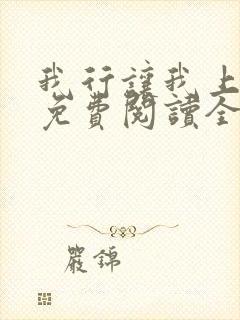 我行讓我上
免費閱讀全
嚴錦